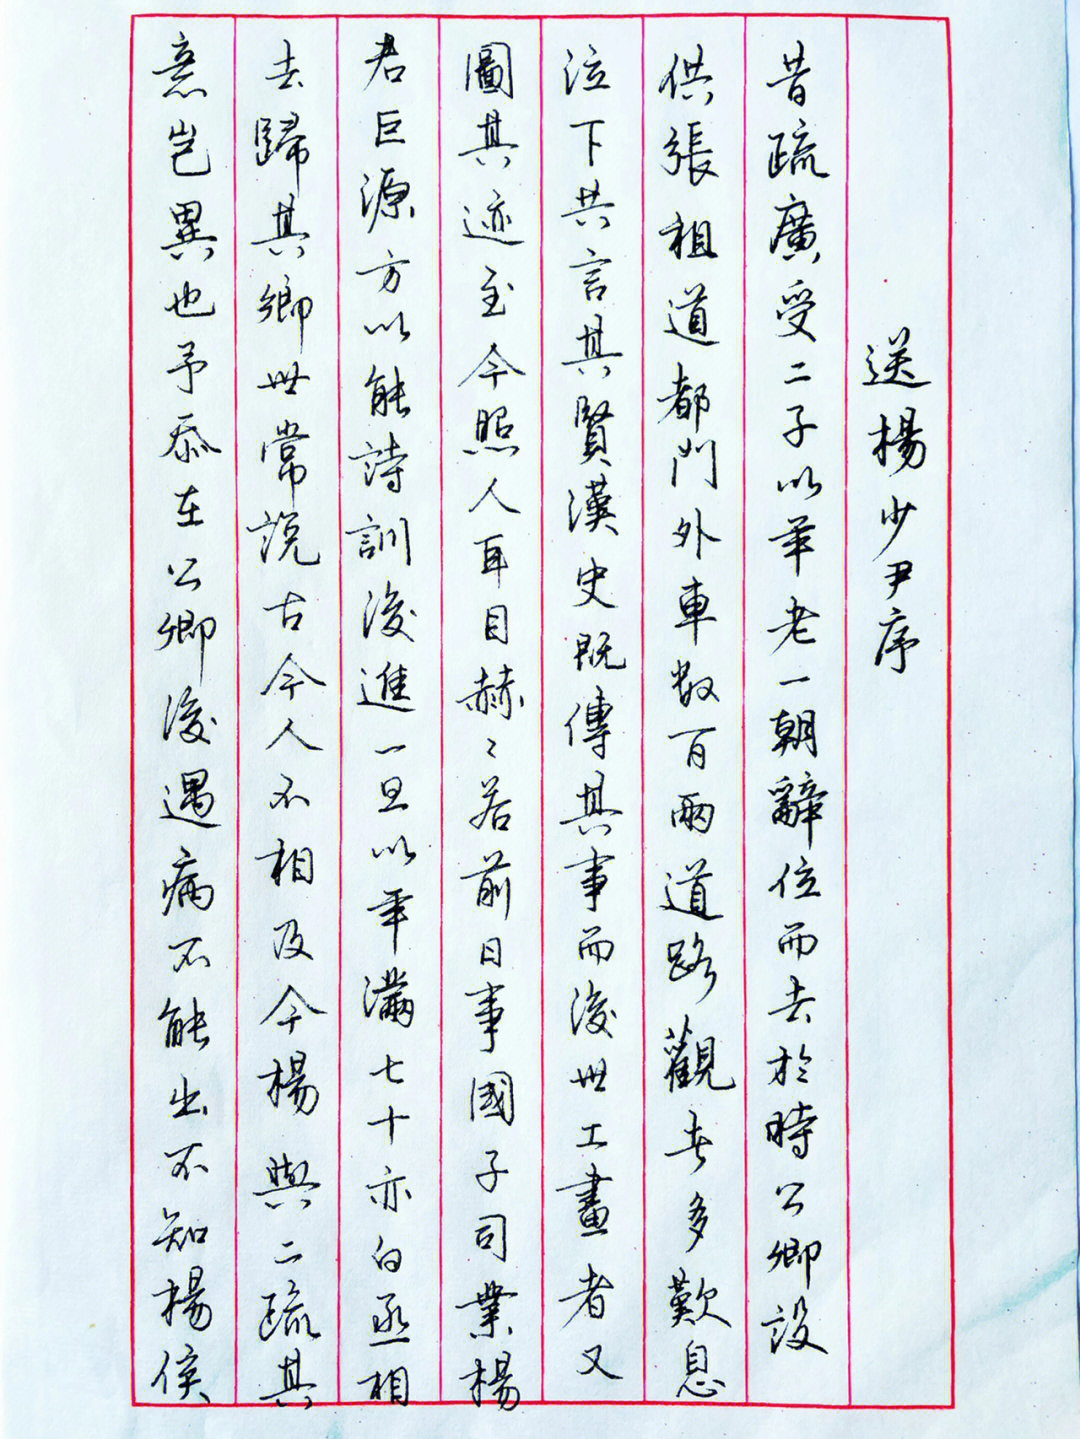 送楊少尹序
昔疏廣受二子以年老一朝辭位而去於時公卿設
供張祖道都門外車数百兩道路觀者多歎息
泣下共言其賢漢史既傳其事而後世工畫者又
圖其迹至今照人耳目赫〻若前日事國子司業楊
君巨源方以能詩訓後進一旦以年滿七十亦白丞相
去歸其鄉世常説古今人不相及今楊與二疏其
意豈異也予忝在公卿後遇病不能出不知楊侯